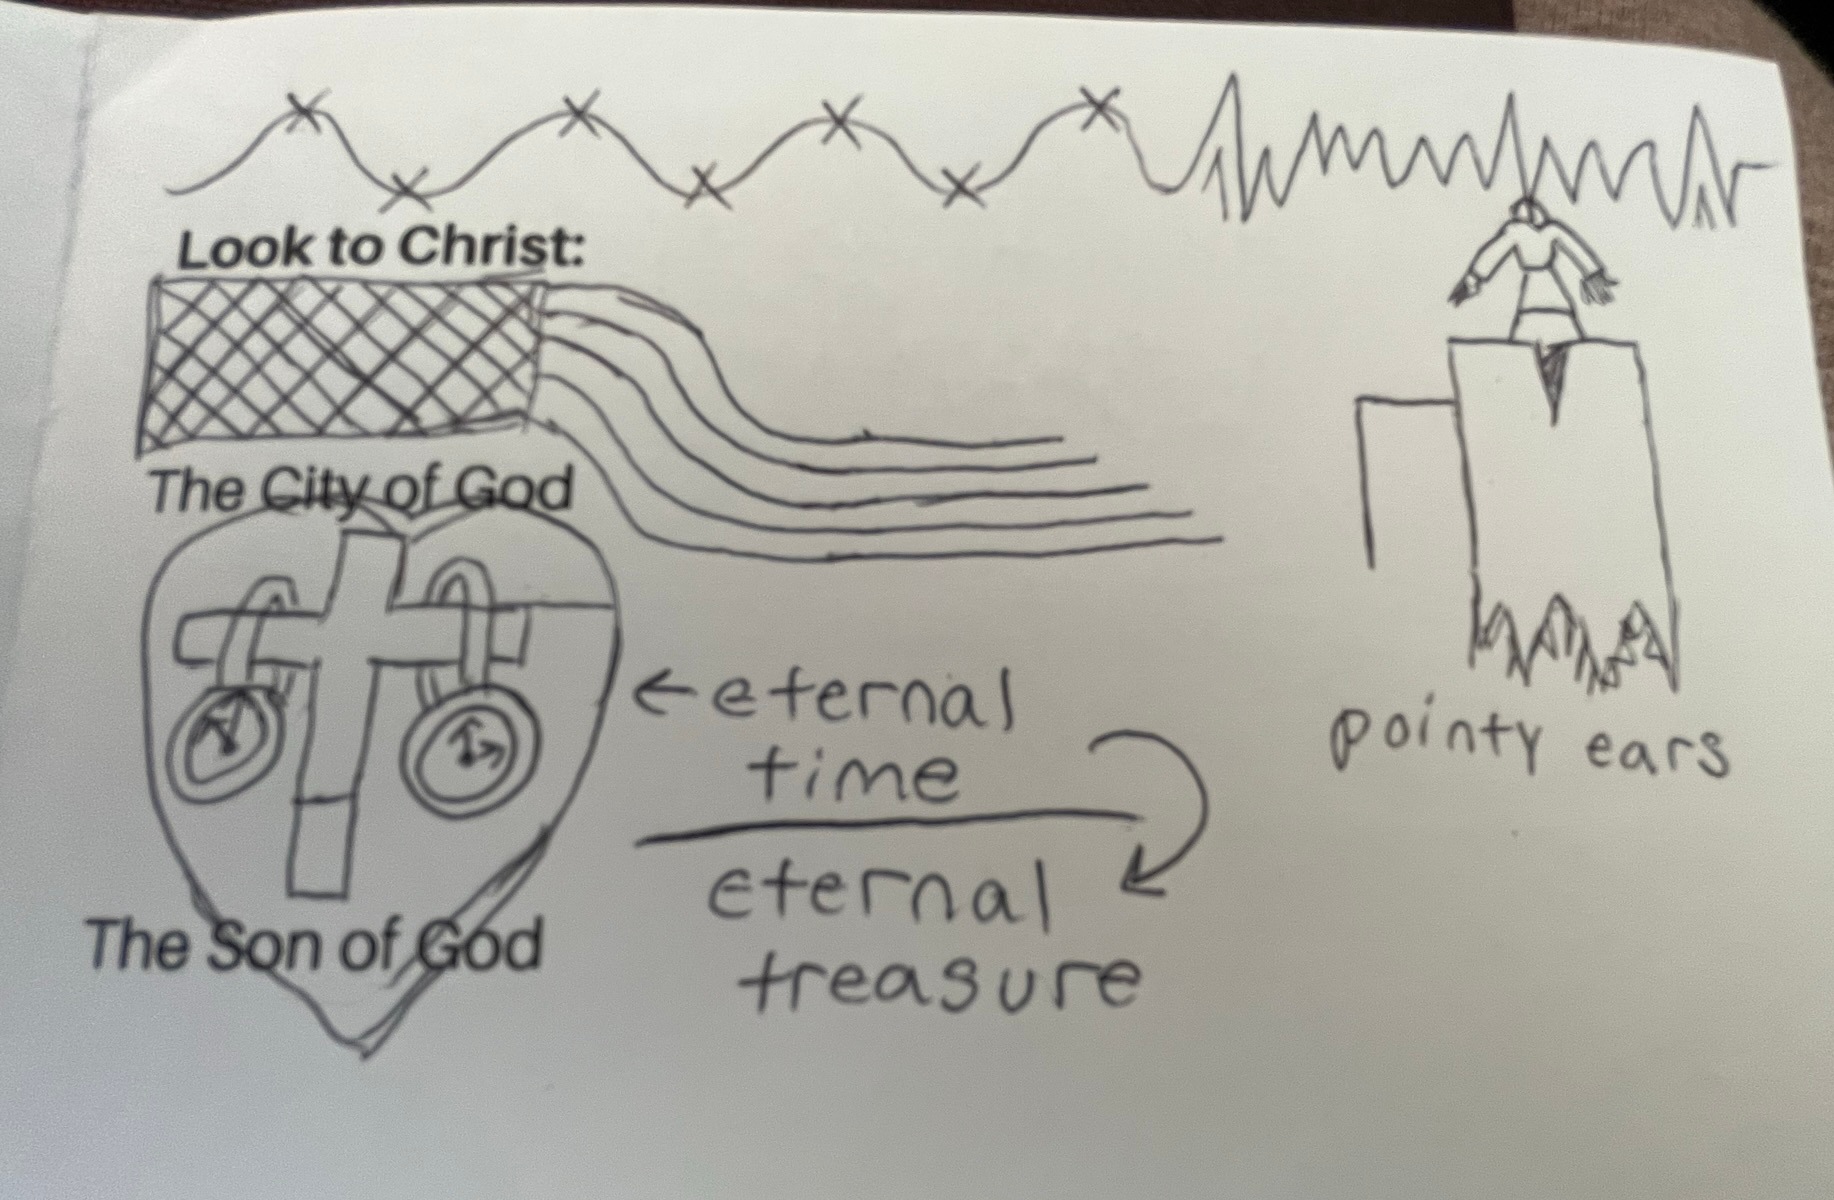 Look to Christ:
The City of God
← eternal
time
eternal
treasure
The Son of God
pointy ears